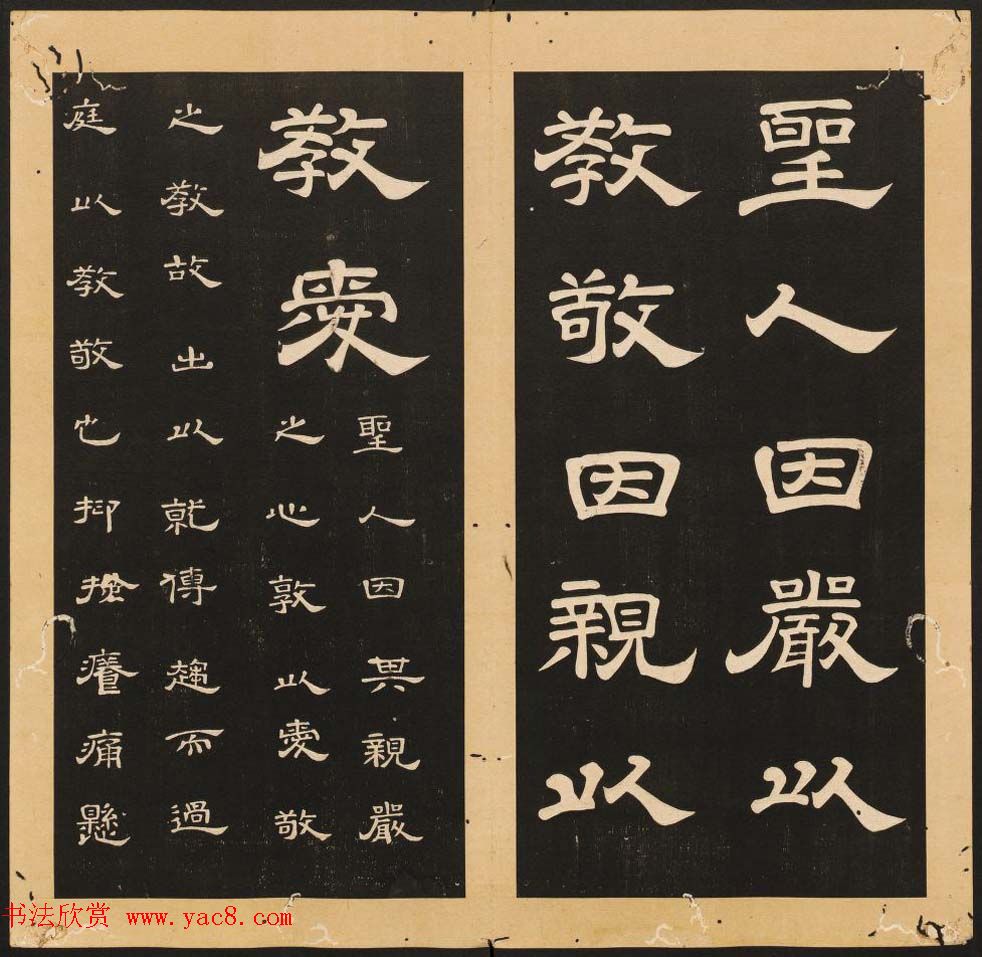 聖人因嚴以
教敬因親以
教愛
聖人因其親嚴
之心敦以愛敬
之教故出以就傅趨而過
庭以教敬也抑搔癢痛懸
书法欣赏 www.yac8.com